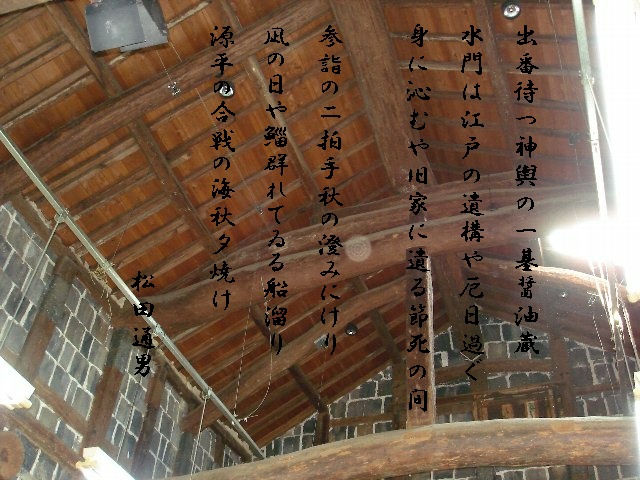 出番待つ神輿の一基醤油蔵
水門は江戸の遺構や厄日過ぐ
身に沁むや旧家に遺る節死の間
参詣の二拍手秋の澄みにけり
凪の日や鯔群れてゐる船溜り
源平の合戦の海秋夕焼け
松田道男